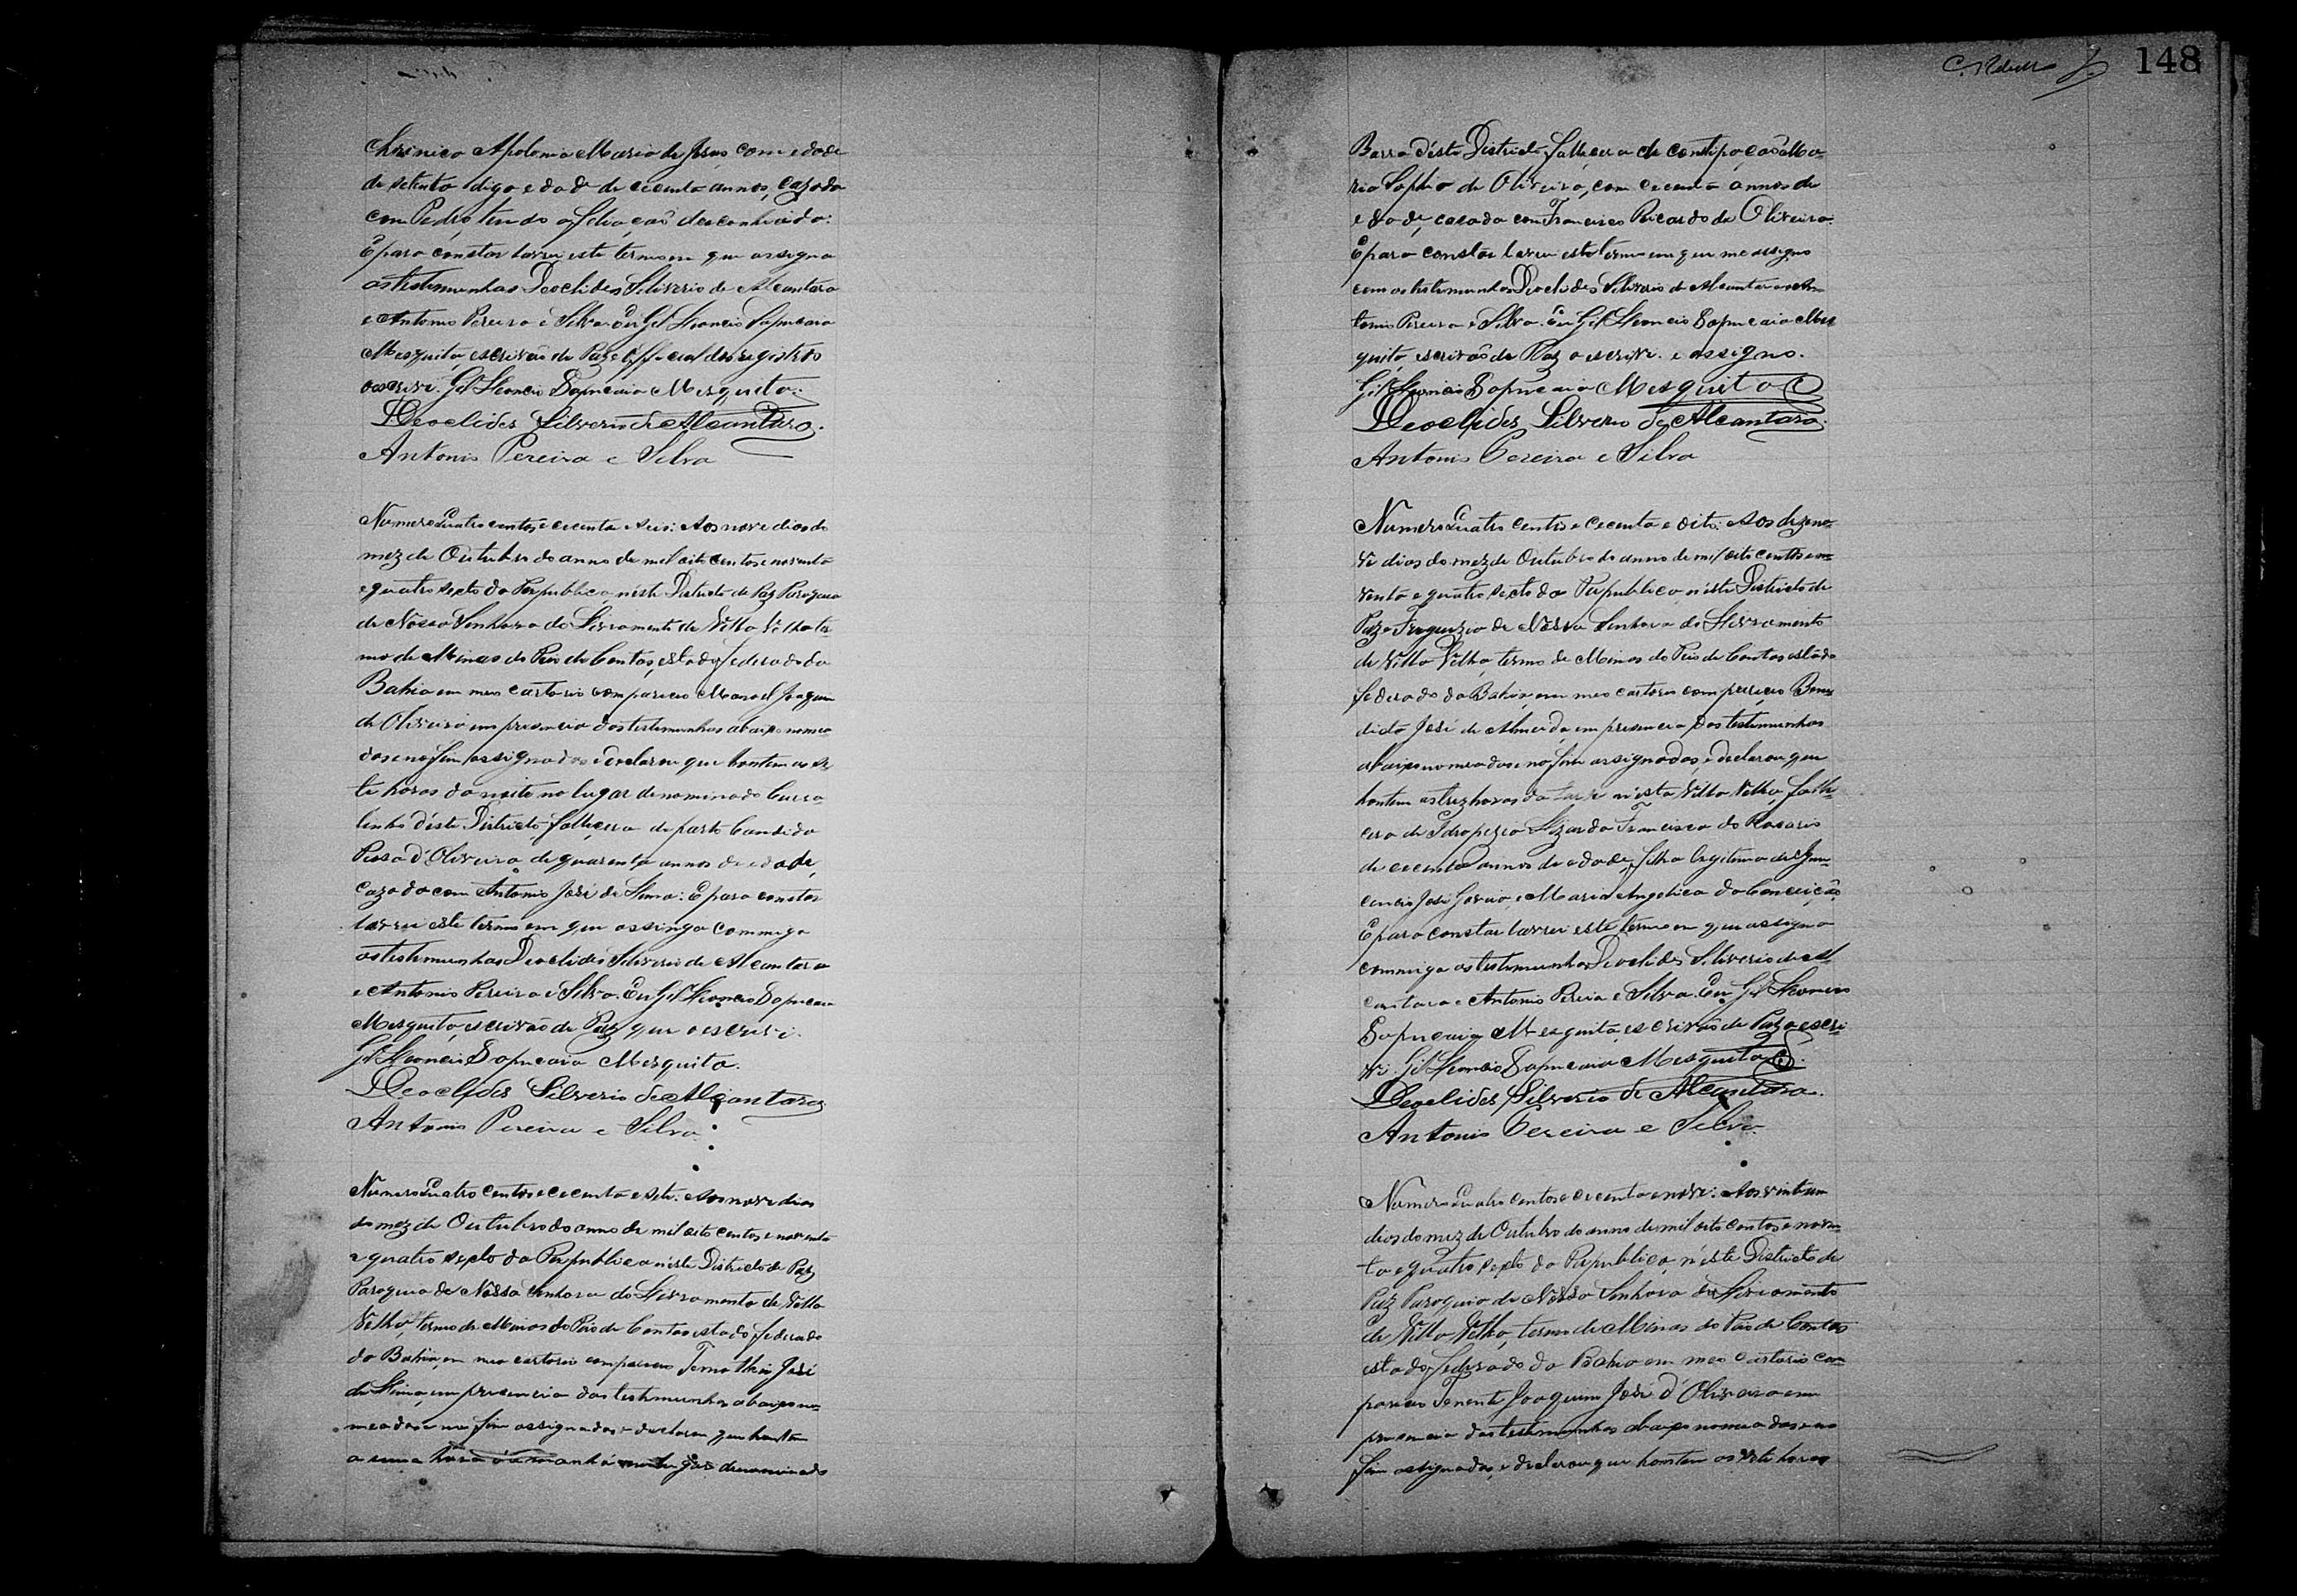 Chrinica Apolonia Maria de Jesus com edade
de setenta digo edade de cecenta annos, cazada
com Pedro, tendo a filiação desconhecida:
E para constar lavrei este termo em que assigna
as testemunhas Deoclides Silverio de Alcantara
e Antonio Pereira e Silva. Eu Gil Leoncio Sapucaia
Mesquita, escrivão de Paz e Official dos registros
o escrivi. Gil Leoncio Sapucaia Mesquita.
Deoclides Silverio de Alcantara.
Antonio Pereira e Silva
Numero Quatro centos e cecenta e seis: Aos nove dias do
mez de Outubro do anno de mil oito centos e noventa
e quatro sexto da Republica néste Districto de Paz Paroquia
de Nossa Senhora do Livramento de Villa Velha ter-
mo de Minas do Rio de Contas, estado federado da
Bahia em meu cartorio compareceo Manoel Joaquim
de Oliveira em presencia das testemunhas abaixo nomea
das e no fim assignadas e declarou que hontem as se
te horas da noite no lugar denominado Curra
linho déste Districto fallecera de parto Candida
Rosa d'Oliveira de quarenta annos de edade,
cazada com Antonio José de Lima: E para constar
lavrei este termo em que assingna commigo
as testemunhas Deoclides Silverio de Alcantara
e Antonio Pereira e Silva. Eu Gil Leoncio Sapucaia
Mesquita, escrivão de Paz que o escrivi.
Gil Leoncio Sapucaia Mesquita.
Deoclides Silverio de Alcantara
Antonio Pereira e Silva
Numero Quatro centos e cecenta e sete: Aos nove dias
do mez de Outubro do anno de mil oito centos e noventa
e quatro sexto da Republica néste Districto de Paz
Paroquia de Nossa Senhora do Livramento de Villa
Velha, termo de Minas do Rio de Contas estado federado
da Bahia, em meu cartorio compareceo Temothio José
de Lima, em presencia das testemunhas abaixo no-
meadas e no fim assignadas e declarou que hontem
a uma hora da manhã no lugar denominado
148
Barra déste Districto fallecera de constipação Ma-
ria Sophia de Oliveira, com cecenta annos de
edade, casada com Francisco Ricardo de Oliveira.
E para constar lavrei este termo em que me assigno
com as testemunhas Deoclides Silverio de Alcantara e An-
tonio Pereira e Silva. Eu Gil Leoncio Sapucaia Mes
quita, escrivão de Paz o escrivi e assigno.
Gil Leoncio Sapucaia Mesquita
Deoclides Silverio de Alcantara.
Antonio Pereira e Silva
Numero Quatro centos e cecenta e oito: Aos dezeno-
ve dias do mez de Outubro do anno de mil oito centos e no-
venta e quatro sexto da Republica, n'éste Districto de
Paz e Freguezia de Nossa Senhora do Livramento
de Villa Velha, termo de Minas do Rio de Contas estado
federado da Bahia, em meu cartorio compareceo Bene
dicto José de Almeida, em presencia das testemunhas
abaixo nomeadas e no fim assignadas, e declarou que
hontem as trez horas da tarde n'esta Villa Velha, falle
cera de Idropezia Lizarda Francisca do Rosario
de cecenta annos de edade, filha legitima de Inno
cencio José Garcia e Maria Angelica da Conceição.
E para constar lavrei este termo em que assigna
commigo as testemunhas Deoclides Silverio de Al
cantara e Antonio Pereira e Silva. Eu Gil Leoncio
Sapucaia Mesquita, escrivão de Paz o escri
vi Gil Leoncio Sapucaia Mesquita.
Deoclides Silverio de Alcantara.
Antonio Pereira e Silva.
Numero Quatro centos e cecenta e nove: Aos vinte um
dias do mez de Outubro do anno de mil oito centos e noven-
ta e quatro sexto da Republica, n'éste Districto de
Paz Paroquia de Nossa Senhora do Livramento
de Villa Velha, termo de Minas do Rio de Contas
estado federado da Bahia em meu cartorio com
pareceo Tenente Joaquim José d'Oliveira em
presencia das testemunhas abaixo nomeadas e no
fim assignadas, e declarou que hontem as sete horas